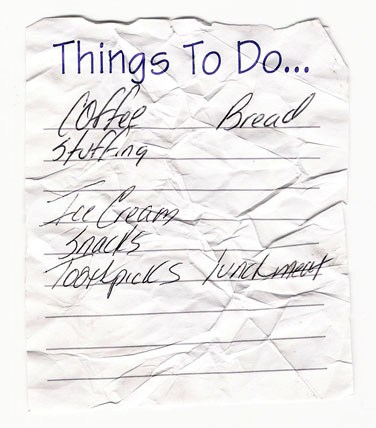 Things To Do...
Coffee Bread
Stuffing
Ice Cream
Snacks
Toothpicks lunchmeat